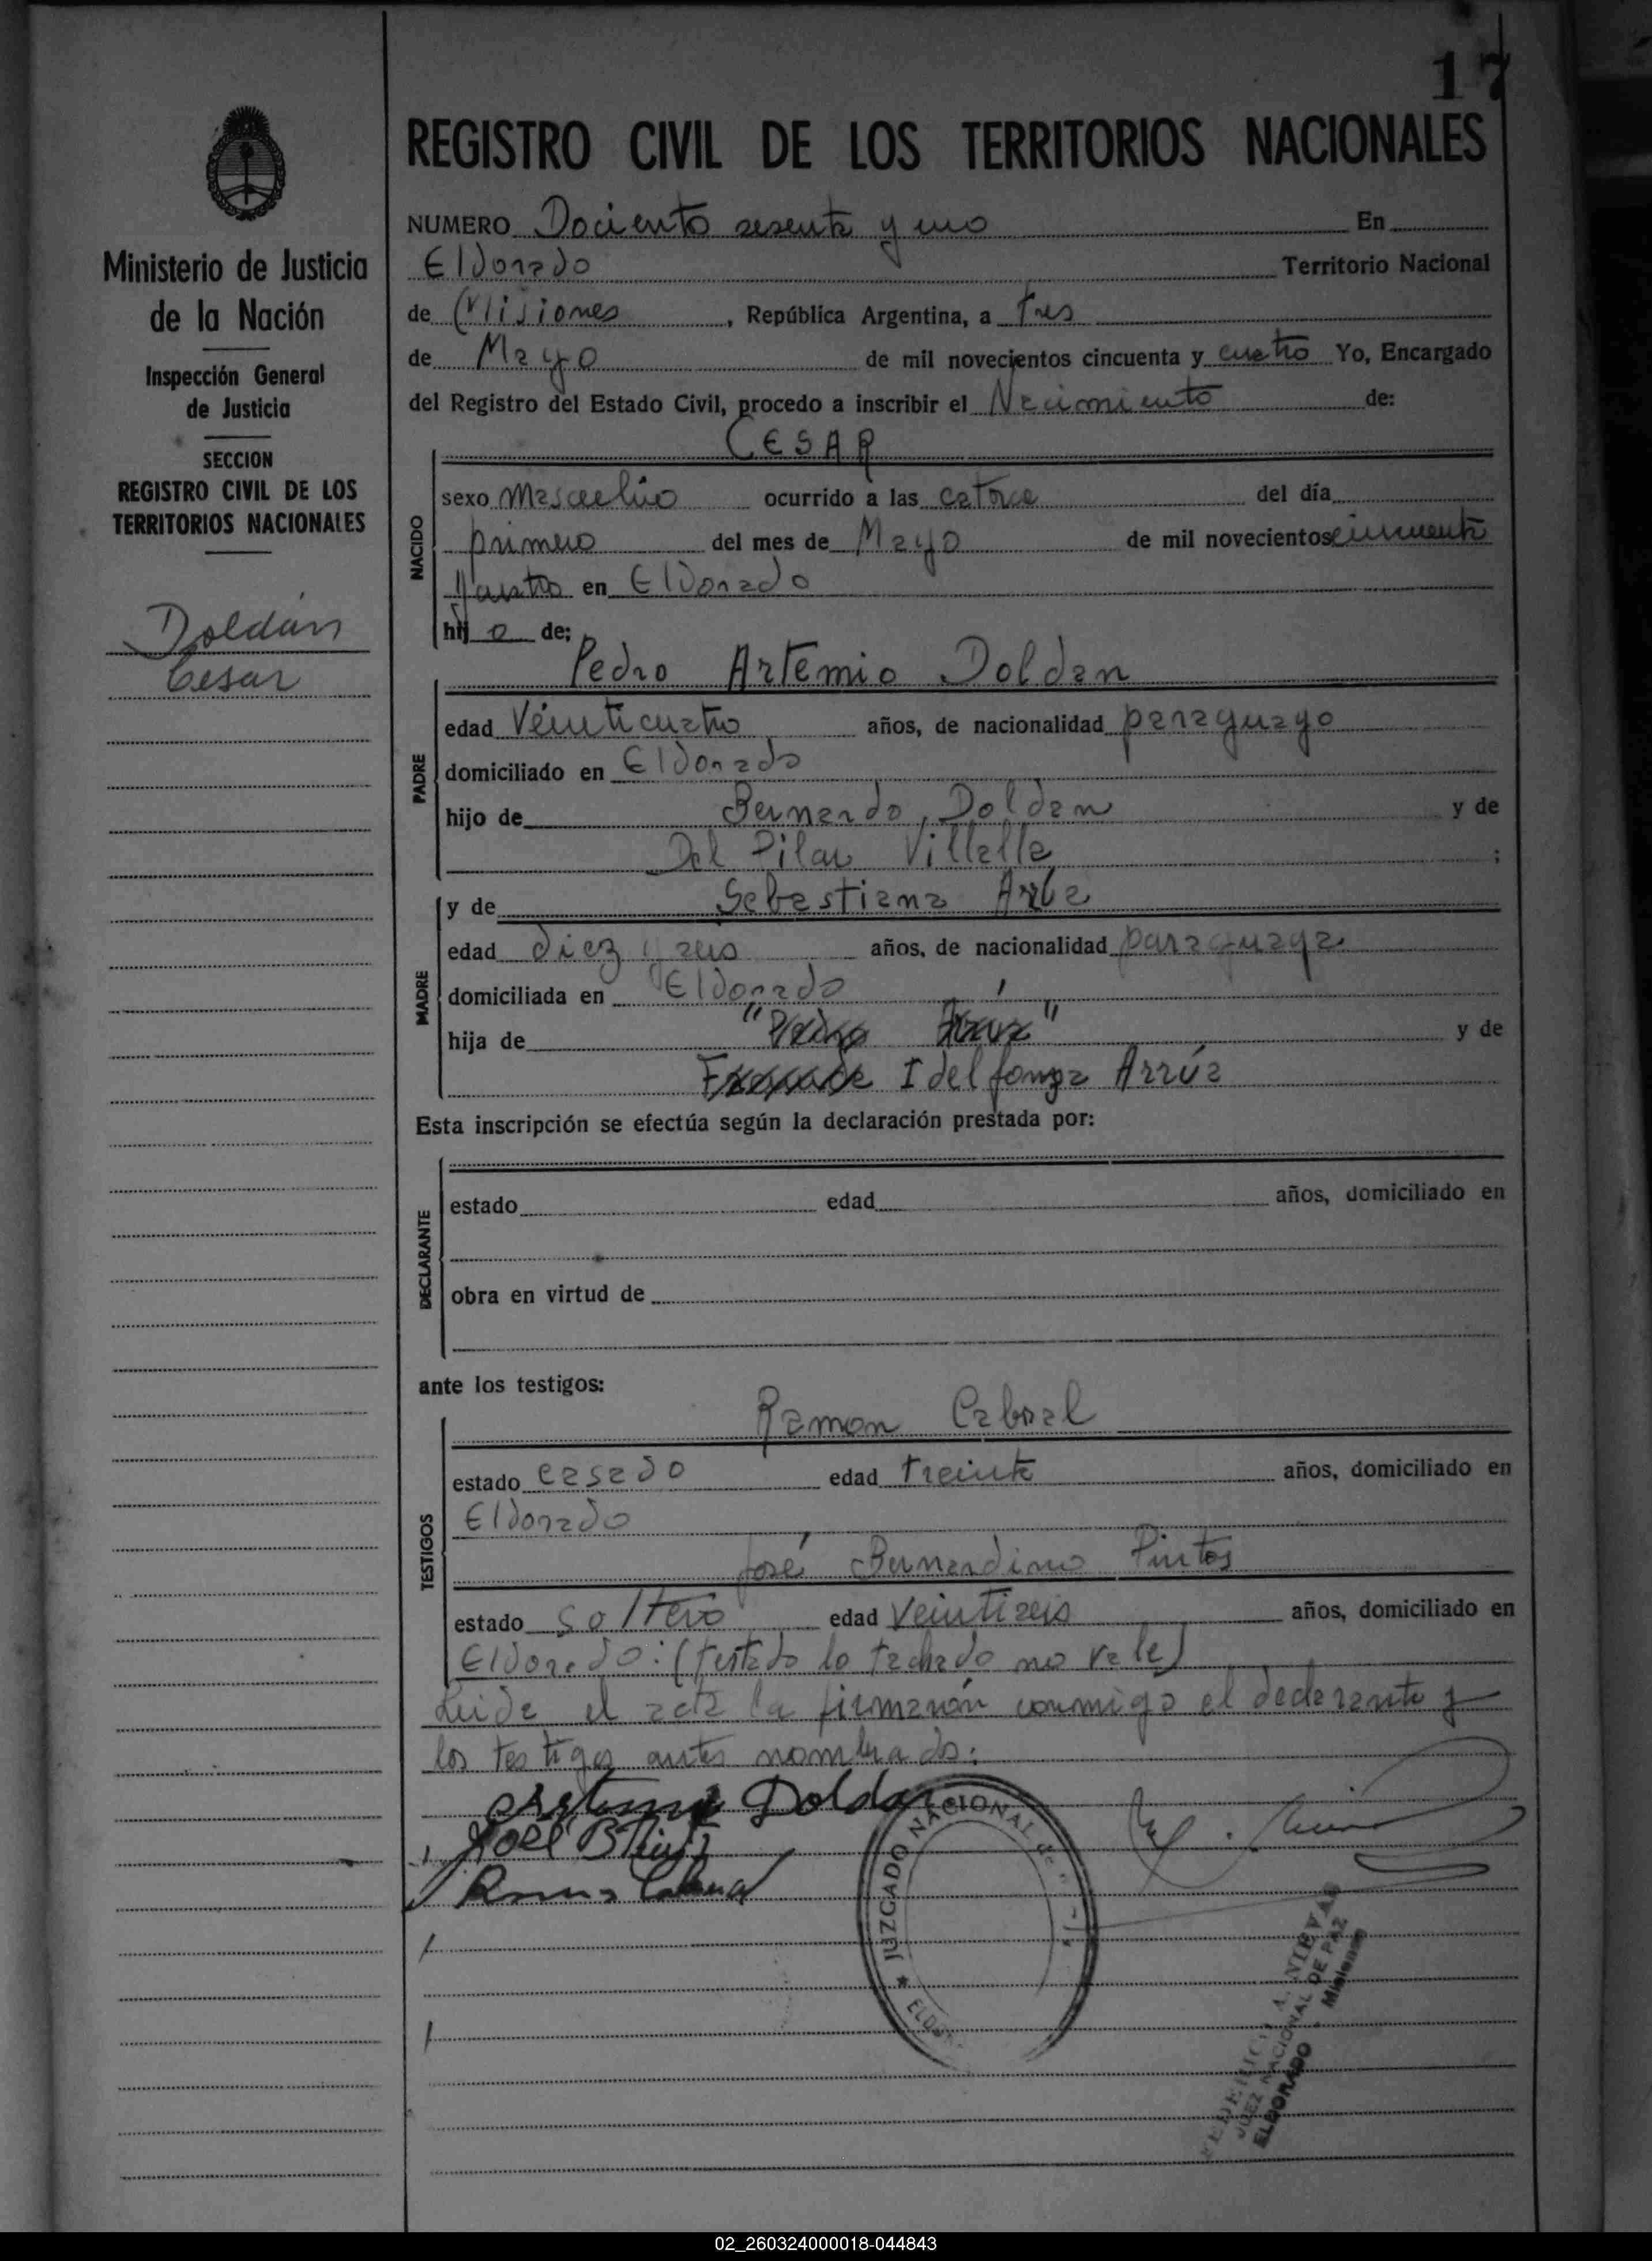 17
REGISTRO CIVIL DE LOS TERRITORIOS NACIONALES
Ministerio de Justicia
de la Nación
Inspección General
de Justicia
SECCION
REGISTRO CIVIL DE LOS
TERRITORIOS NACIONALES
Doldán
Cesar
NUMERO Dociento sesenta y uno En
Eldorado Territorio Nacional
de Misiones, República Argentina, a tres
de Mayo de mil novecientos cincuenta y cuatro Yo, Encargado
del Registro del Estado Civil, procedo a inscribir el Nacimiento de:
CESAR
NACIDO
sexo masculino ocurrido a las catorce del día
primero del mes de Mayo de mil novecientos cincuenta
y cuatro en Eldorado
hij o de;
Pedro Artemio Doldan
PADRE
edad Veinticuatro años, de nacionalidad paraguayo
domiciliado en Eldorado
hijo de Bernardo Doldan y de
Del Pilar Villalla ;
y de Sebastiana Arua
MADRE
edad diez y seis años, de nacionalidad paraguaya
domiciliada en Eldorado
hija de y de
Idelfonza Arrúa
Esta inscripción se efectúa según la declaración prestada por:
DECLARANTE
estado edad años, domiciliado en
obra en virtud de
ante los testigos:
Ramon Cabral
TESTIGOS
estado casado edad treinta años, domiciliado en
Eldorado
José Bernardino Pintos
estado soltero edad Veintiseis años, domiciliado en
Eldorado: (testado lo tachado no vale)
Leida el acta la firmarón conmigo el declarante y
los testigos antes nombrados:
Artemio Doldan
José B Pintos
Ramon Cabral
JUZGADO NACIONAL de
ELDO
FEDERICO A. NIEVAS
JUEZ NACIONAL DE PAZ
ELDORADO - Misiones
02_260324000018-044843